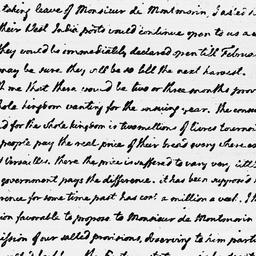 taking leave of Monsieur de Montmorin, I asked
their West India ports would continue open to us a
they would be immediately declared open till Februa
may be sure they will be so till the next harvest.
me that there would be two or three months prov
whole kingdom wanting for the ensuing year. the consu
d for the whole kingdom is two millions of livres tournoi
people pay the real price of their bread every where ex
Versailles. there the price is suffered to vary very litt
government pays the difference. it has been supposed
rence for some time past has cost a million a week. I th
ion favorable to propose to Monsieur de Montmorin
ission of our salted provisions, observing to him parti